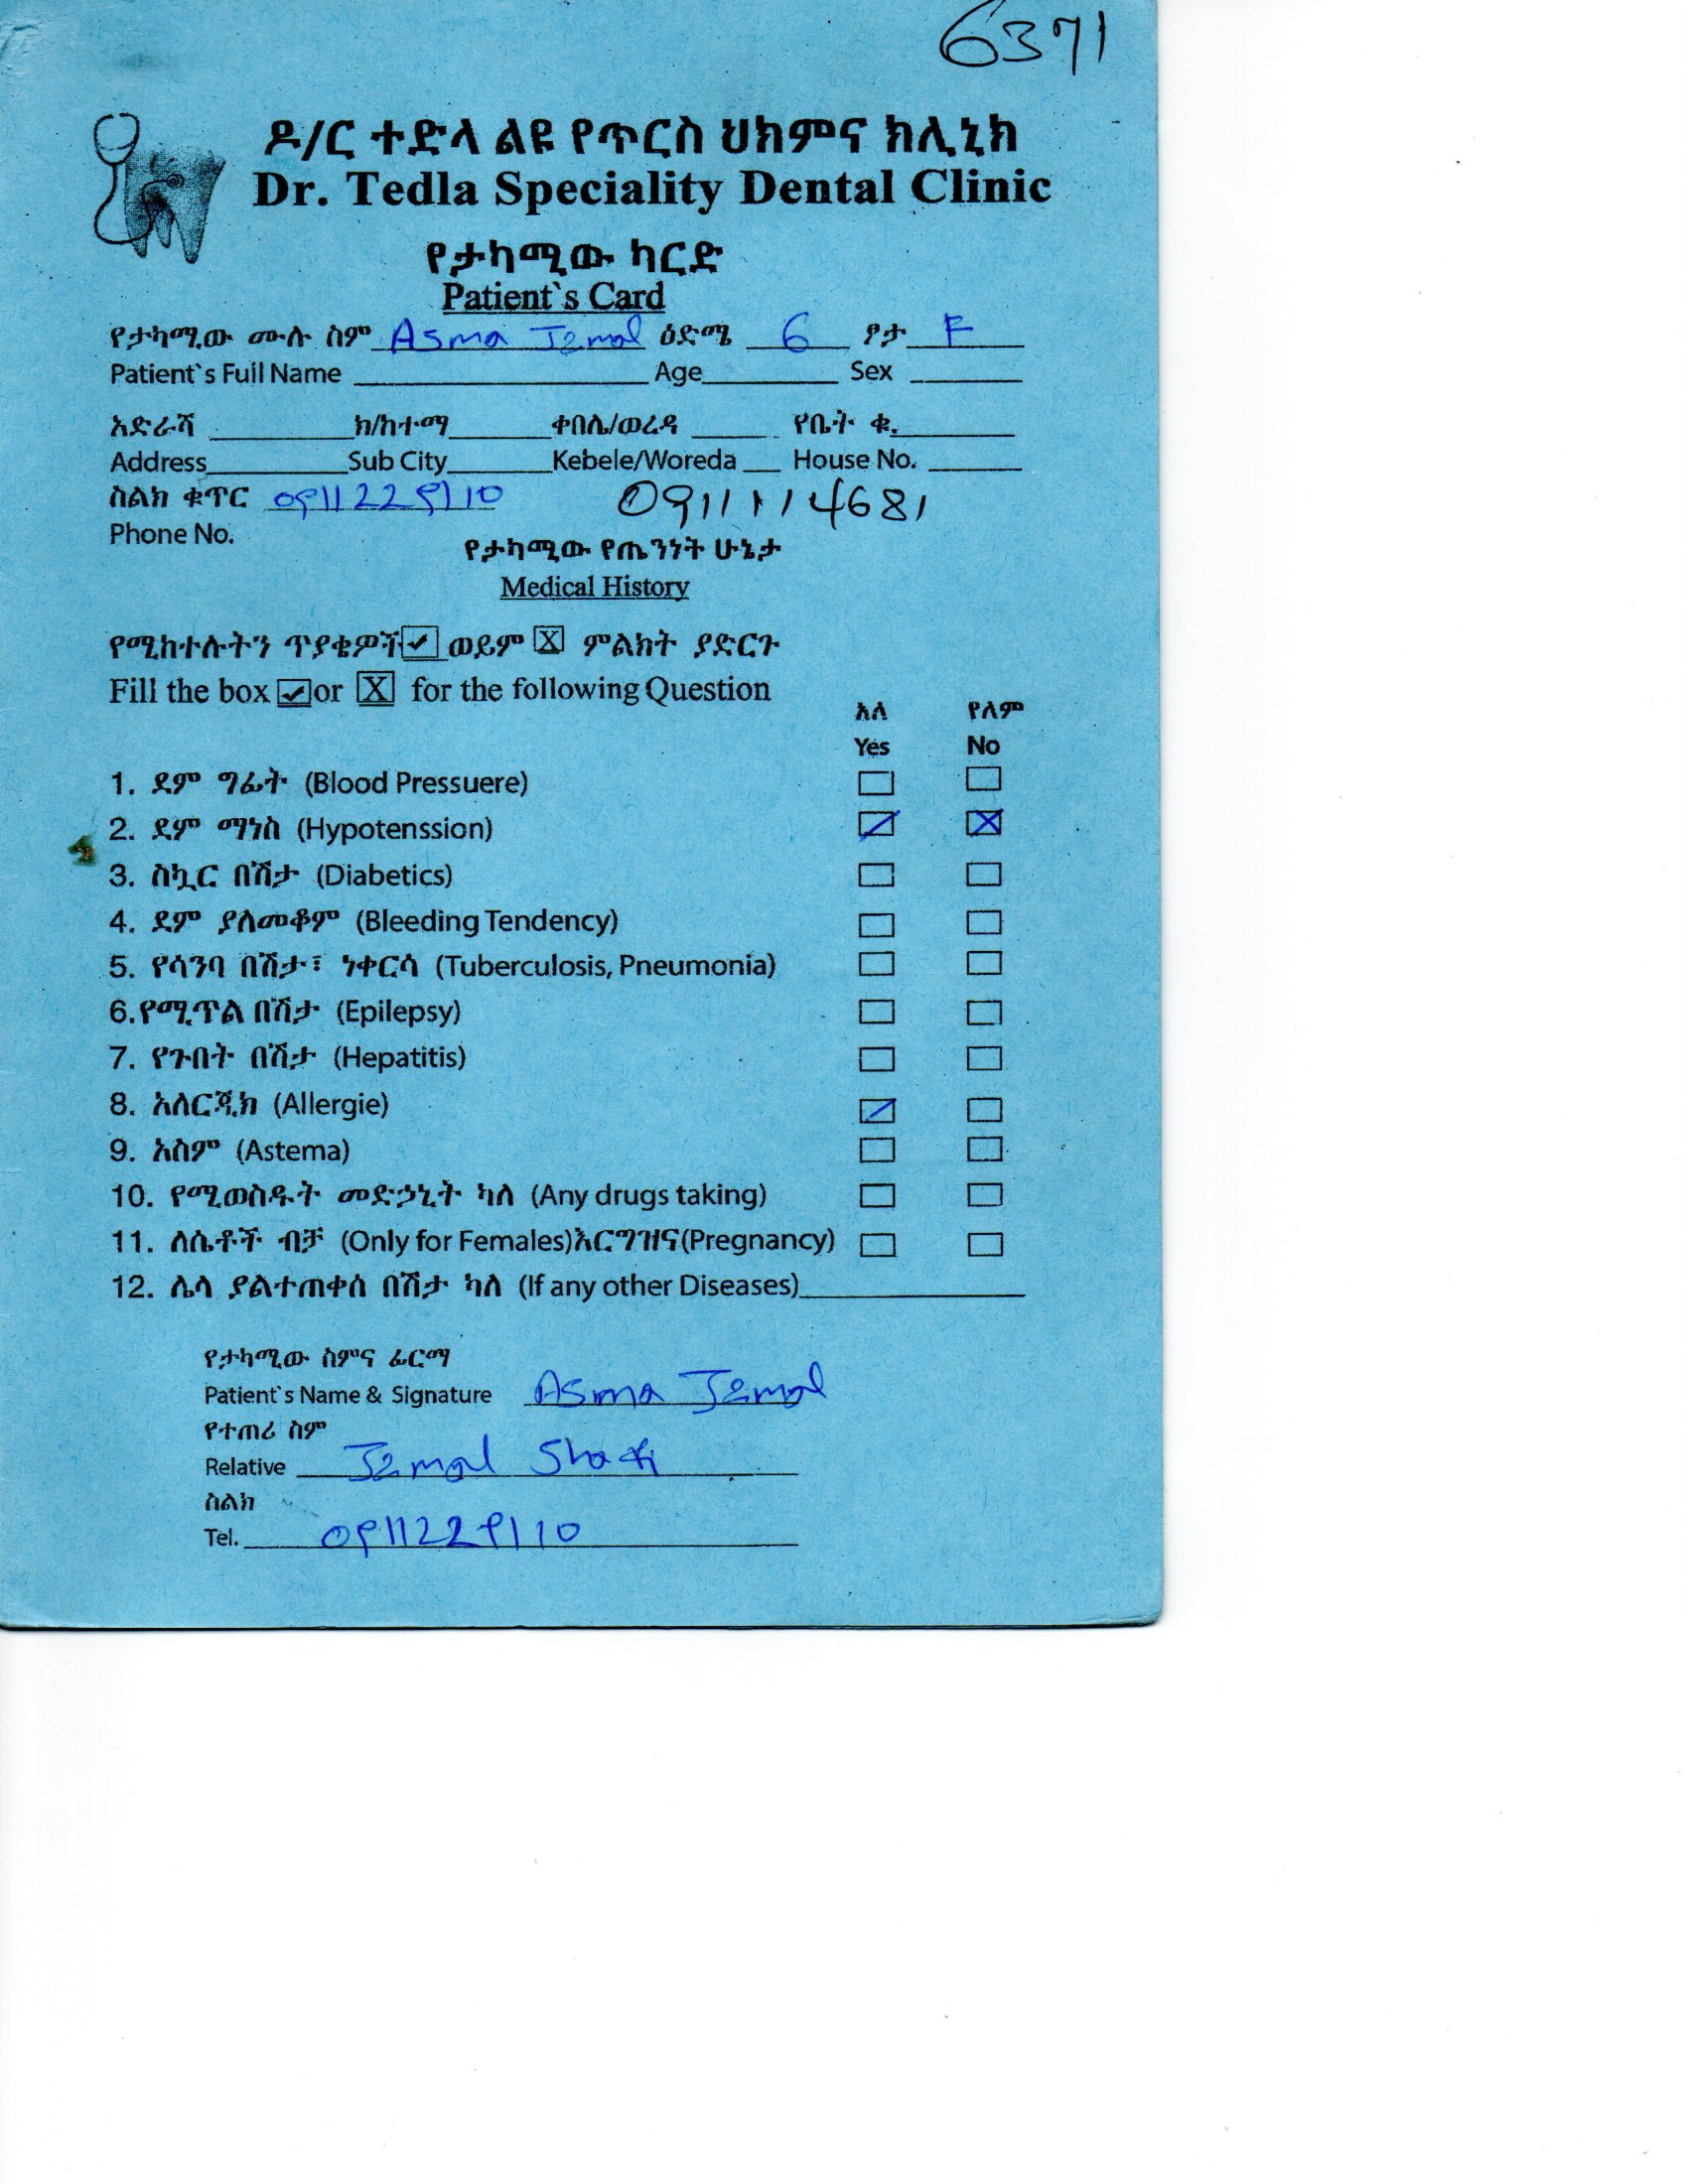 6371
ዶ/ር ተድላ ልዩ የጥርስ ህክምና ክሊኒክ
Dr. Tedla Speciality Dental Clinic
የታካሚው ካርድ
Patient`s Card
የታካሚው ሙሉ ስም Asma Jemal ዕድሜ 6 ፆታ F
Patient`s Full Name Age Sex
አድራሻ ክ/ከተማ ቀበሌ/ወረዳ የቤት ቁ.
Address Sub City Kebele/Woreda House No.
ስልክ ቁጥር 0911229110 0911114681
Phone No.
የታካሚው የጤንነት ሁኔታ
Medical History
የሚከተሉትን ጥያቄዎች ✓ ወይም X ምልክት ያድርጉ
Fill the box ✓ or X for the following Question
አለ የለም
Yes No
1. ደም ግፊት (Blood Pressuere)
2. ደም ማነስ (Hypotenssion)
3. ስኳር በሽታ (Diabetics)
4. ደም ያለመቆም (Bleeding Tendency)
5. የሳንባ በሽታ፣ ነቀርሳ (Tuberculosis, Pneumonia)
6.የሚጥል በሽታ (Epilepsy)
7. የጉበት በሽታ (Hepatitis)
8. አለርጂክ (Allergie)
9. አስም (Astema)
10. የሚወስዱት መድኃኒት ካለ (Any drugs taking)
11. ለሴቶች ብቻ (Only for Females)እርግዝና(Pregnancy)
12. ሌላ ያልተጠቀሰ በሽታ ካለ (If any other Diseases)
የታካሚው ስምና ፊርማ
Patient`s Name & Signature Asma Jemal
የተጠሪ ስም
Relative Jemal
ስልክ
Tel. 0911229110